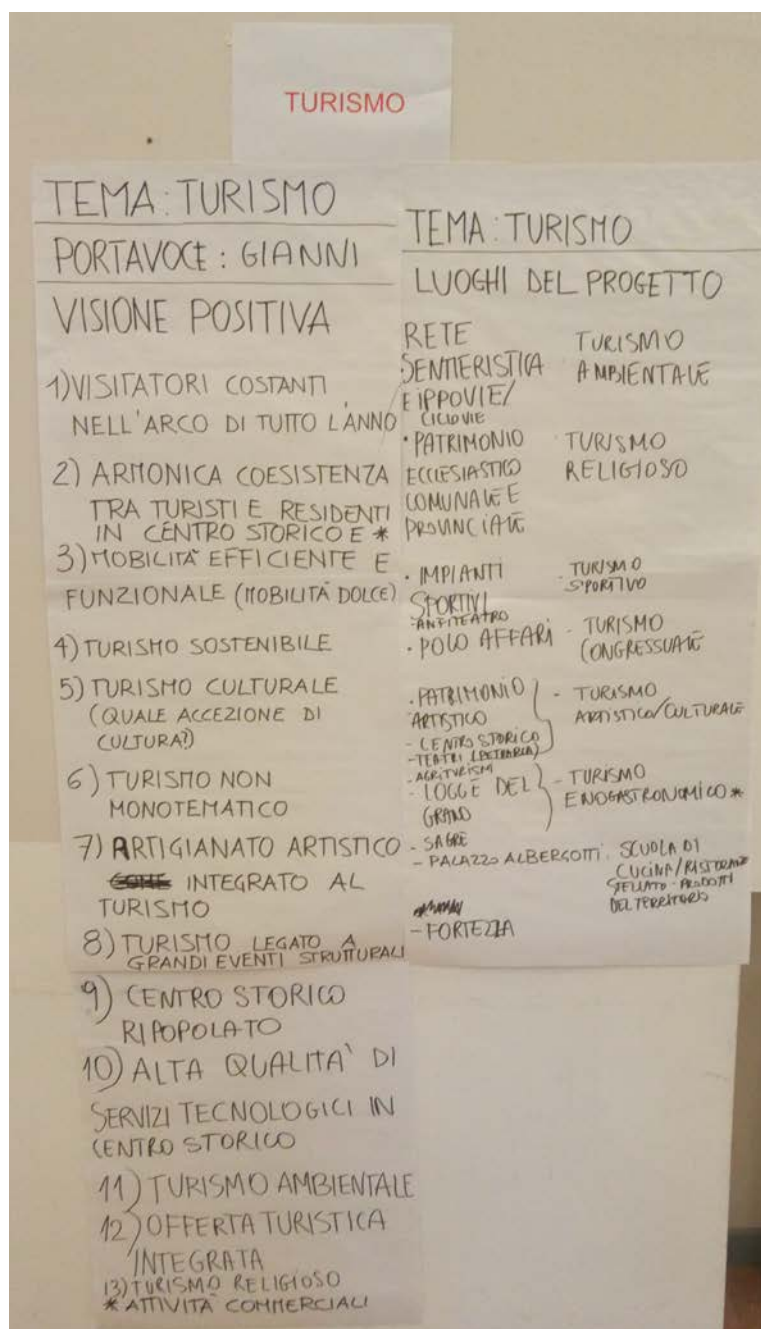 TURISMO
TEMA: TURISMO
PORTAVOCE: GIANNI
VISIONE POSITIVA
1) VISITATORI COSTANTI
NELL'ARCO DI TUTTO L'ANNO
2) ARMONICA COESISTENZA
TRA TURISTI E RESIDENTI
IN CENTRO STORICO E *
3) MOBILITÀ EFFICIENTE E
FUNZIONALE (MOBILITÀ DOLCE)
4) TURISMO SOSTENIBILE
5) TURISMO CULTURALE
(QUALE ACCEZIONE DI
CULTURA?)
6) TURISMO NON
MONOTEMATICO
7) ARTIGIANATO ARTISTICO
COME INTEGRATO AL
TURISMO
8) TURISMO LEGATO A
GRANDI EVENTI STRUTTURALI
9) CENTRO STORICO
RIPOPOLATO
10) ALTA QUALITA' DI
SERVIZI TECNOLOGICI IN
CENTRO STORICO
11) TURISMO AMBIENTALE
12) OFFERTA TURISTICA
INTEGRATA
13) TURISMO RELIGIOSO
* ATTIVITÀ COMMERCIALI
TEMA: TURISMO
LUOGHI DEL PROGETTO
RETE
SENTIERISTICA
E IPPOVIE/
CICLOVIE
TURISMO
AMBIENTALE
• PATRIMONIO
ECCLESIASTICO
COMUNALE E
PROVINCIALE
TURISMO
RELIGIOSO
• IMPIANTI
SPORTIVI
- ANFITEATRO
- TURISMO
SPORTIVO
• POLO AFFARI
- TURISMO
CONGRESSUALE
• PATRIMONIO
ARTISTICO
- CENTRO STORICO
- TEATRI (PETRARCA)
- TURISMO
ARTISTICO/CULTURALE
- AGRITURISM
- LOGGE DEL
GRANO
- TURISMO
ENOGASTRONOMICO *
- SAGRE
- PALAZZO ALBERGOTTI: SCUOLA DI
CUCINA/RISTORANTE
STELLATO - PRODOTTI
DEL TERRITORIO
- FORTEZZA